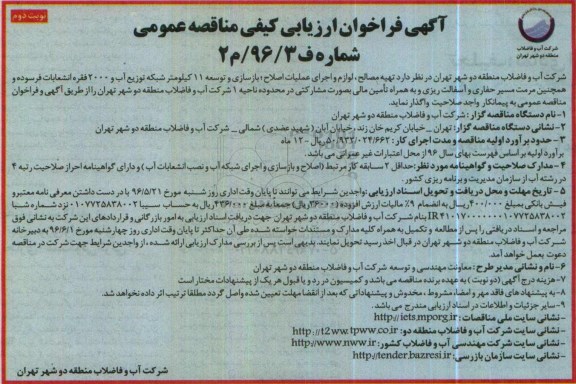 نوبت دوم
آگهی فراخوان ارزیابی کیفی مناقصه عمومی
شماره ف۹۶/۳/م۲
شرکت آب و فاضلاب
منطقه دو شهر تهران
شرکت آب و فاضلاب منطقه دو شهر تهران در نظر دارد تهیه مصالح، لوازم و اجرای عملیات اصلاح، بازسازی و توسعه ۱۱ کیلومتر شبکه توزیع آب و ۲۰۰۰ فقره انشعابات فرسوده و
همچنین مرمت مسیر حفاری و آسفالت ریزی و به همراه تأمین مالی بصورت مشارکتی در محدوده ناحیه ۱ شرکت آب و فاضلاب منطقه دو شهر تهران را از طریق آگهی و فراخوان
مناقصه عمومی به پیمانکار واجد صلاحیت واگذار نماید.
۱- نام دستگاه مناقصه گزار: شرکت آب و فاضلاب منطقه دو شهر تهران
۲- نشانی دستگاه مناقصه گزار: تهران _ خیابان کریم خان زند، خیابان آبان (شهید عضدی) شمالی _ شرکت آب و فاضلاب منطقه دو شهر تهران
۳- حدود برآورد اولیه مناقصه و مدت اجرای کار: ۵۰/۹۳۲/۰۲۴/۶۶۲ ریال - ۱۲ ماه
برآورد اولیه بر اساس فهرست بهای سال ۹۶ از محل اعتبارات غیر عمومی می باشد.
۴- مدارک صلاحیت و گواهینامه مورد نظر: حداقل ۲ سابقه کار مرتبط (اصلاح و بازسازی و اجرای شبکه آب و نصب انشعابات آب) و دارای گواهینامه احراز صلاحیت رتبه ۴
در رشته آب از سازمان مدیریت و برنامه ریزی کشور.
۵- تاریخ مهلت و محل دریافت و تحویل اسناد ارزیابی: واجدین شرایط می توانند تا پایان وقت اداری روز شنبه مورخ ۹۶/۵/۲۱ با در دست داشتن معرفی نامه معتبر و
فیش بانکی بمبلغ ۴۰۰/۰۰۰ ریال به انضمام ۹٪ مالیات ارزش افزوده (۳۶۰۰۰ ریال) جمعا به مبلغ ۴۳۶/۰۰۰ ریال به حساب سیبا ۰۱۰۷۷۲۵۸۳۸۰۰۲ نزد شماره شبا
IR بنام شرکت آب و فاضلاب منطقه دو شهر تهران جهت دریافت اسناد ارزیابی به امور بازرگانی و قراردادهای این شرکت به نشانی فوق
مراجعه و اسناد دریافتی را پس از مطالعه و تکمیل به همراه کلیه مدارک و مستندات خواسته شده طی آن حداکثر تا پایان وقت اداری روز چهارشنبه مورخ ۹۶/۶/۱ به دبیرخانه
شرکت آب و فاضلاب منطقه دو شهر تهران در قبال اخذ رسید تحویل نمایند. بدیهی است پس از بررسی مدارک ارزیابی ارائه شده، از واجدین شرایط جهت شرکت در مناقصه
دعوت بعمل خواهد آمد.
۶- نام و نشانی مدیر طرح: معاونت مهندسی و توسعه شرکت آب و فاضلاب منطقه دو شهر تهران
۷- هزینه درج آگهی (دو نوبت) به عهده برنده مناقصه می باشد و کمیسیون در رد و یا قبول هر یک از پیشنهادات مختار است
۸- به پیشنهاد های فاقد مهر و امضاء، مشروط، مخدوش و پیشنهاداتی که بعد از انقضا مهلت تعیین شده واصل گردد مطلقا ترتیب اثر داده نخواهد شد.
۹- سایر جزئیات و اطلاعات در اسناد ارزیابی مندرج می باشد.
- نشانی سایت ملی مناقصات: http://iets.mporg.ir
- نشانی سایت شرکت آب و فاضلاب منطقه دو: http://t2ww.tpww.co.ir
- نشانی سایت شرکت مهندسی آب و فاضلاب کشور: http://www.nww.ir
- نشانی سایت سازمان بازرسی: http://tender.bazresi.ir
شرکت آب و فاضلاب منطقه دو شهر تهران